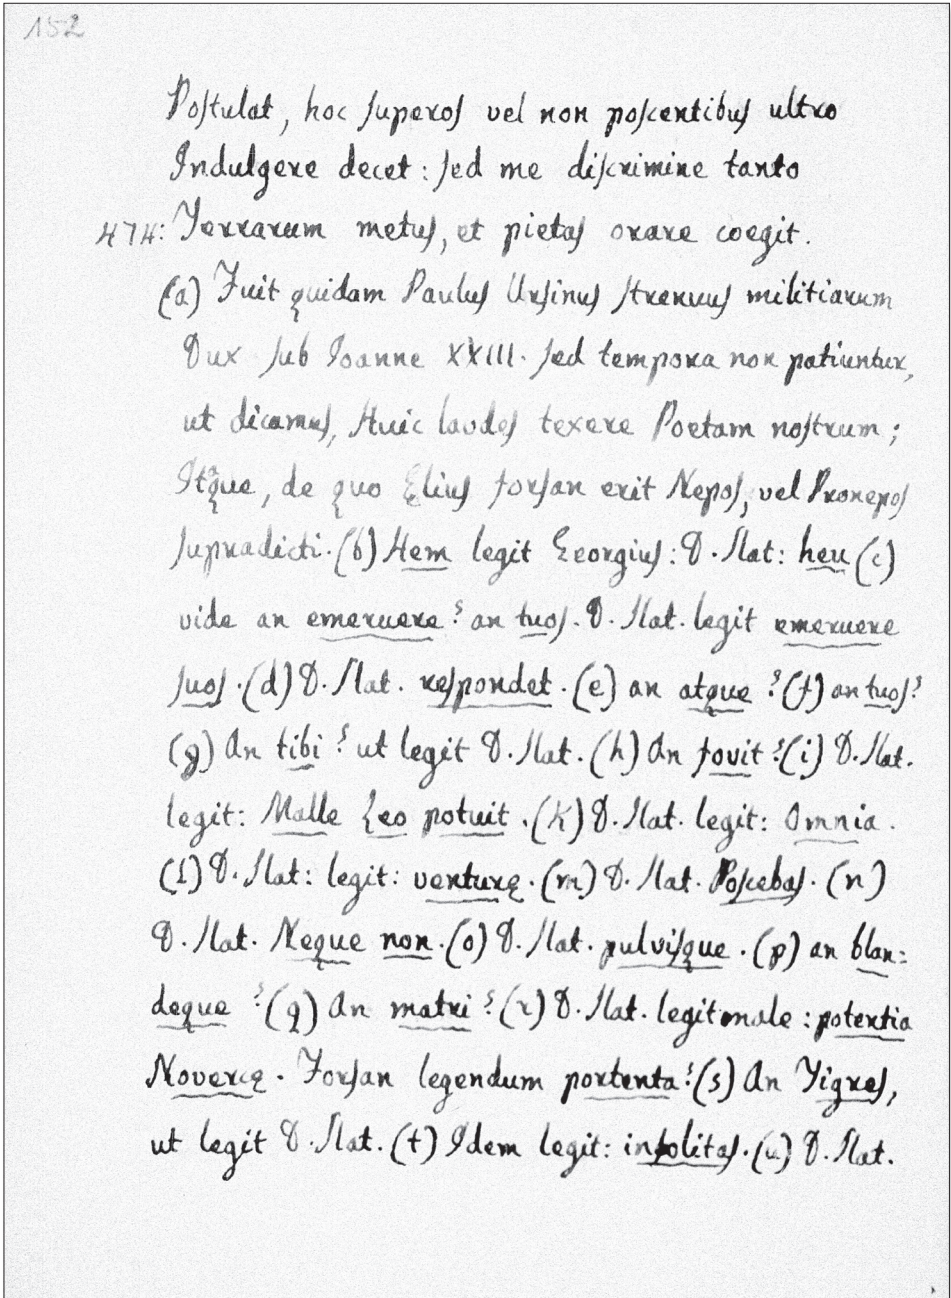 152
Poſtulat, hoc ſuperoſ vel non poſcentibuſ ultro
Indulgere decet: ſed me diſcrimine tanto
474: Terrarum metuſ, et pietaſ orare coegit.
(a) Fuit quidam Pauluſ Urſinuſ ſtrenuuſ militiarum
Dux ſub Ioanne XXIII. ſed tempora non patiuntur,
ut dicamuſ, Huic laudeſ texere Poetam noſtrum;
Itque, de quo Eliuſ forſan erit Nepoſ, vel Pronepoſ
ſupradicti. (b) Hem legit Georgiuſ: D. Nat: heu (c)
vide an emeruere? an tuoſ. D. Nat. legit emeruere
ſuoſ. (d) D. Nat. reſpondet. (e) an atque? (f) an tuoſ?
(g) An tibi? ut legit D. Nat. (h) An fovit? (i) D. Nat.
legit: Malle Leo potuit. (k) D. Nat. legit: Omnia.
(l) D. Nat: legit: venturę. (m) D. Nat. Poſcebaſ. (n)
D. Nat. Neque non. (o) D. Nat. pulviſque. (p) an blan:
deque? (q) An matri? (r) D. Nat. legit male: potentia
Novercę. Forſan legendum portenta? (s) An Tigreſ,
ut legit D. Nat. (t) Idem legit: inſolitaſ. (u) D. Nat.